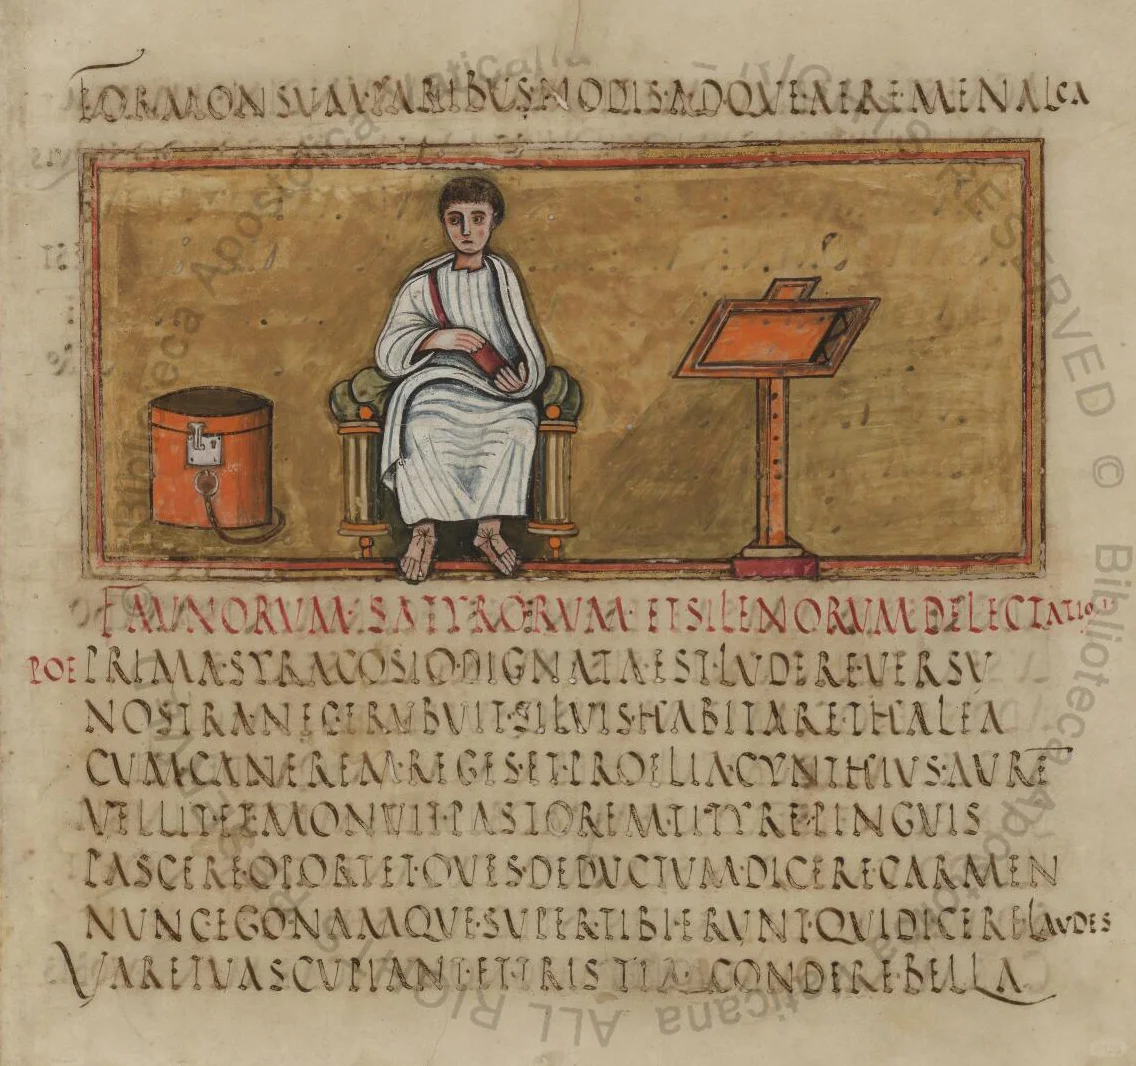 FORMONSUM·PARIBUS·NODIS·ADQUE·AERE·MENALCA
FAUNORUM·SATYRORUM·ETSILENORUM DELECTATIO
POE PRIMA·SYRACOSIO·DIGNATA·EST·LUDERE·VERSU
NOSTRA·NEC·ERUBUIT·SILVIS·HABITARE·THALEA
CUM·CANEREM·REGES·ET·PROELIA·CYNTHIUS·AURE
VELLIT·ET·MONUIT·PASTOREM·TITYRE·PINGUIS
PASCERE·OPORTET·OVES·DEDUCTUM·DICERE·CARMEN
NUNC·EGO NAMQUE·SUPER·TIBI·ERUNT·QUI DICERE·LAUDES
VARE TUAS CUPIANT·ET·TRISTIA·CONDERE·BELLA
Biblioteca Apostolica Vaticana ALL RIGHTS RESERVED ©